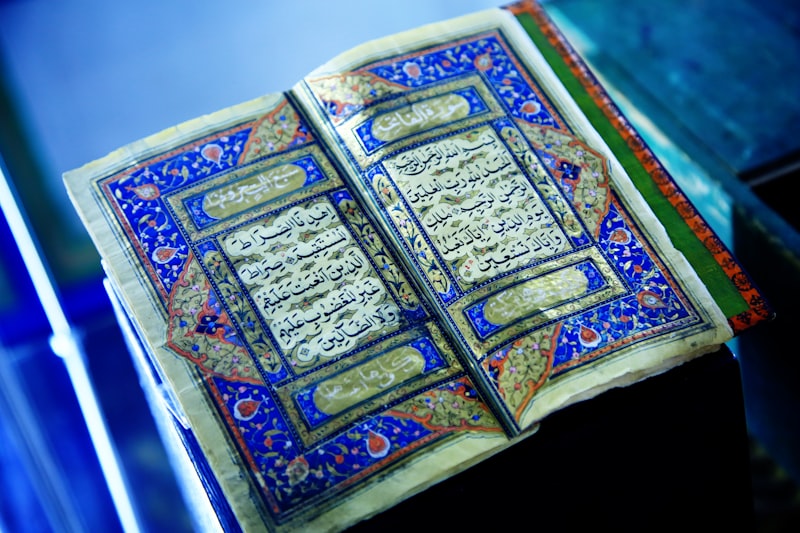 سورة الفاتحة
بِسْمِ اللهِ الرَّحْمٰنِ الرَّحِيمِ
اَلْحَمْدُ لِلّٰهِ رَبِّ الْعَالَمِينَ
الرَّحْمٰنِ الرَّحِيمِ مٰلِكِ
يَوْمِ الدِّينِ اِيَّاكَ نَعْبُدُ
وَاِيَّاكَ نَسْتَعِينُ
سبع
اِهْدِنَا الصِّرَاطَ
الْمُسْتَقِيمَ صِرَاطَ
الَّذِينَ اَنْعَمْتَ عَلَيْهِمْ
غَيْرِ الْمَغْضُوبِ عَلَيْهِمْ
وَلَا الضَّالِّينَ